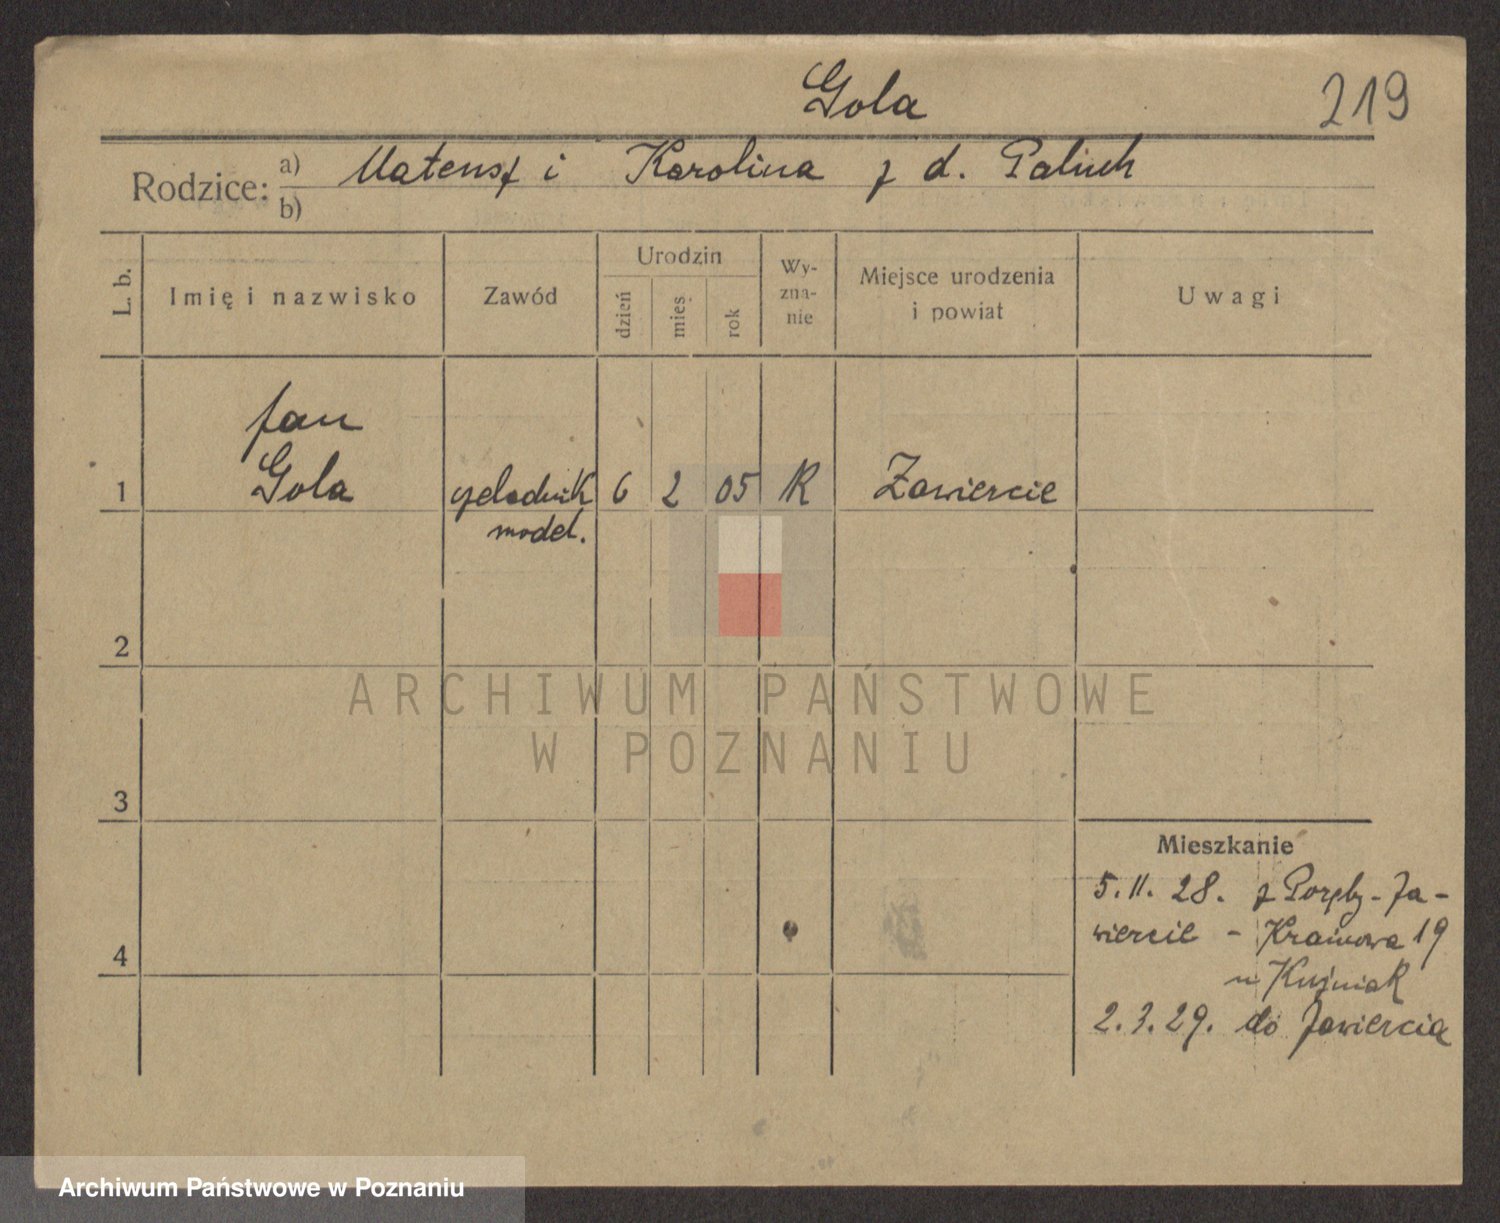 Gola
219
Rodzice: a) Mateusz i Karolina z d. Paluch
b)
L. b.
Imię i nazwisko
Zawód
Urodzin
dzień
mies.
rok
Wy-
zna-
nie
Miejsce urodzenia
i powiat
Uwagi
Jan
1 Gola czeladnik 6 2 05 R Zawiercie
model.
2
ARCHIWUM PAŃSTWOWE
W POZNANIU
3
Mieszkanie
5. II. 28. z Poręby - Za-
wiercie - Krańcowa 19
4
u Kuźniak
2. 3. 29. do Zawiercia
Archiwum Państwowe w Poznaniu